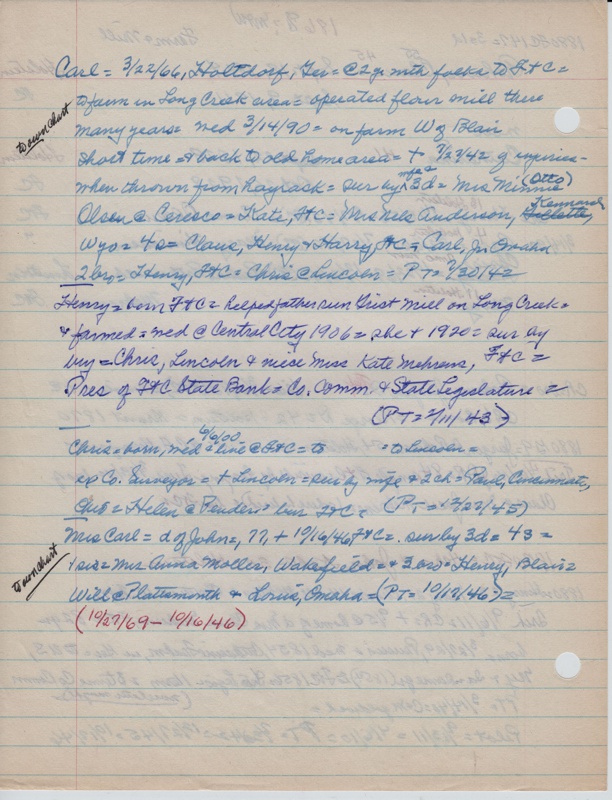 Carl = 3/22/66, Holtdorf, Ger = @ 2 yr with folks to Ft C =
to own chart
to farm in Long Creek area = operated flour mill there
many years = med 3/14/90 = on farm W of Blair
short time = & back to old home area = + 7/27/42 of injuries -
when thrown from hayrack = sur by wife & 3d = Mrs Minnie (Otto)
Olsen @ Ceresco = Kate, Ft C = Mrs Nels Anderson, Kennard
Wyo = 4s = Claus, Henry & Harry Ft C = Carl, Jr. Omaha
2 bro = Henry, Ft C = Chris @ Lincoln = PT = 7/30/42
Henry = born Ft C = helped father run Grist Mill on Long Creek =
& farmed = med @ Central City 1906 = she + 1920 = sur by
bro = Chris, Lincoln & niece Miss Kate Mehrens, Ft C =
Pres of Ft C State Bank = Co. Comm. & State Legislature =
(PT = 2/11/43)
Chris = born, med 6/6/00 = line @ Ft C = to = to Lincoln =
ex Co. Surveyor = + Lincoln = sur by wife & 2 ch = Paul, Cincinnati,
Ohio = Helen @ Pender = bur Ft C = (PT = 12/27/45)
Mrs Carl = d of John =, 77, + 10/16/46 Ft C = . sur by 3d = 4s =
to own chart
1 sis = Mrs Anna Moller, Wakefield = & 3 bro = Henry, Blair =
Will @ Plattsmouth & Louis, Omaha = (PT = 10/17/46) =
(10/27/69 - 10/16/46)